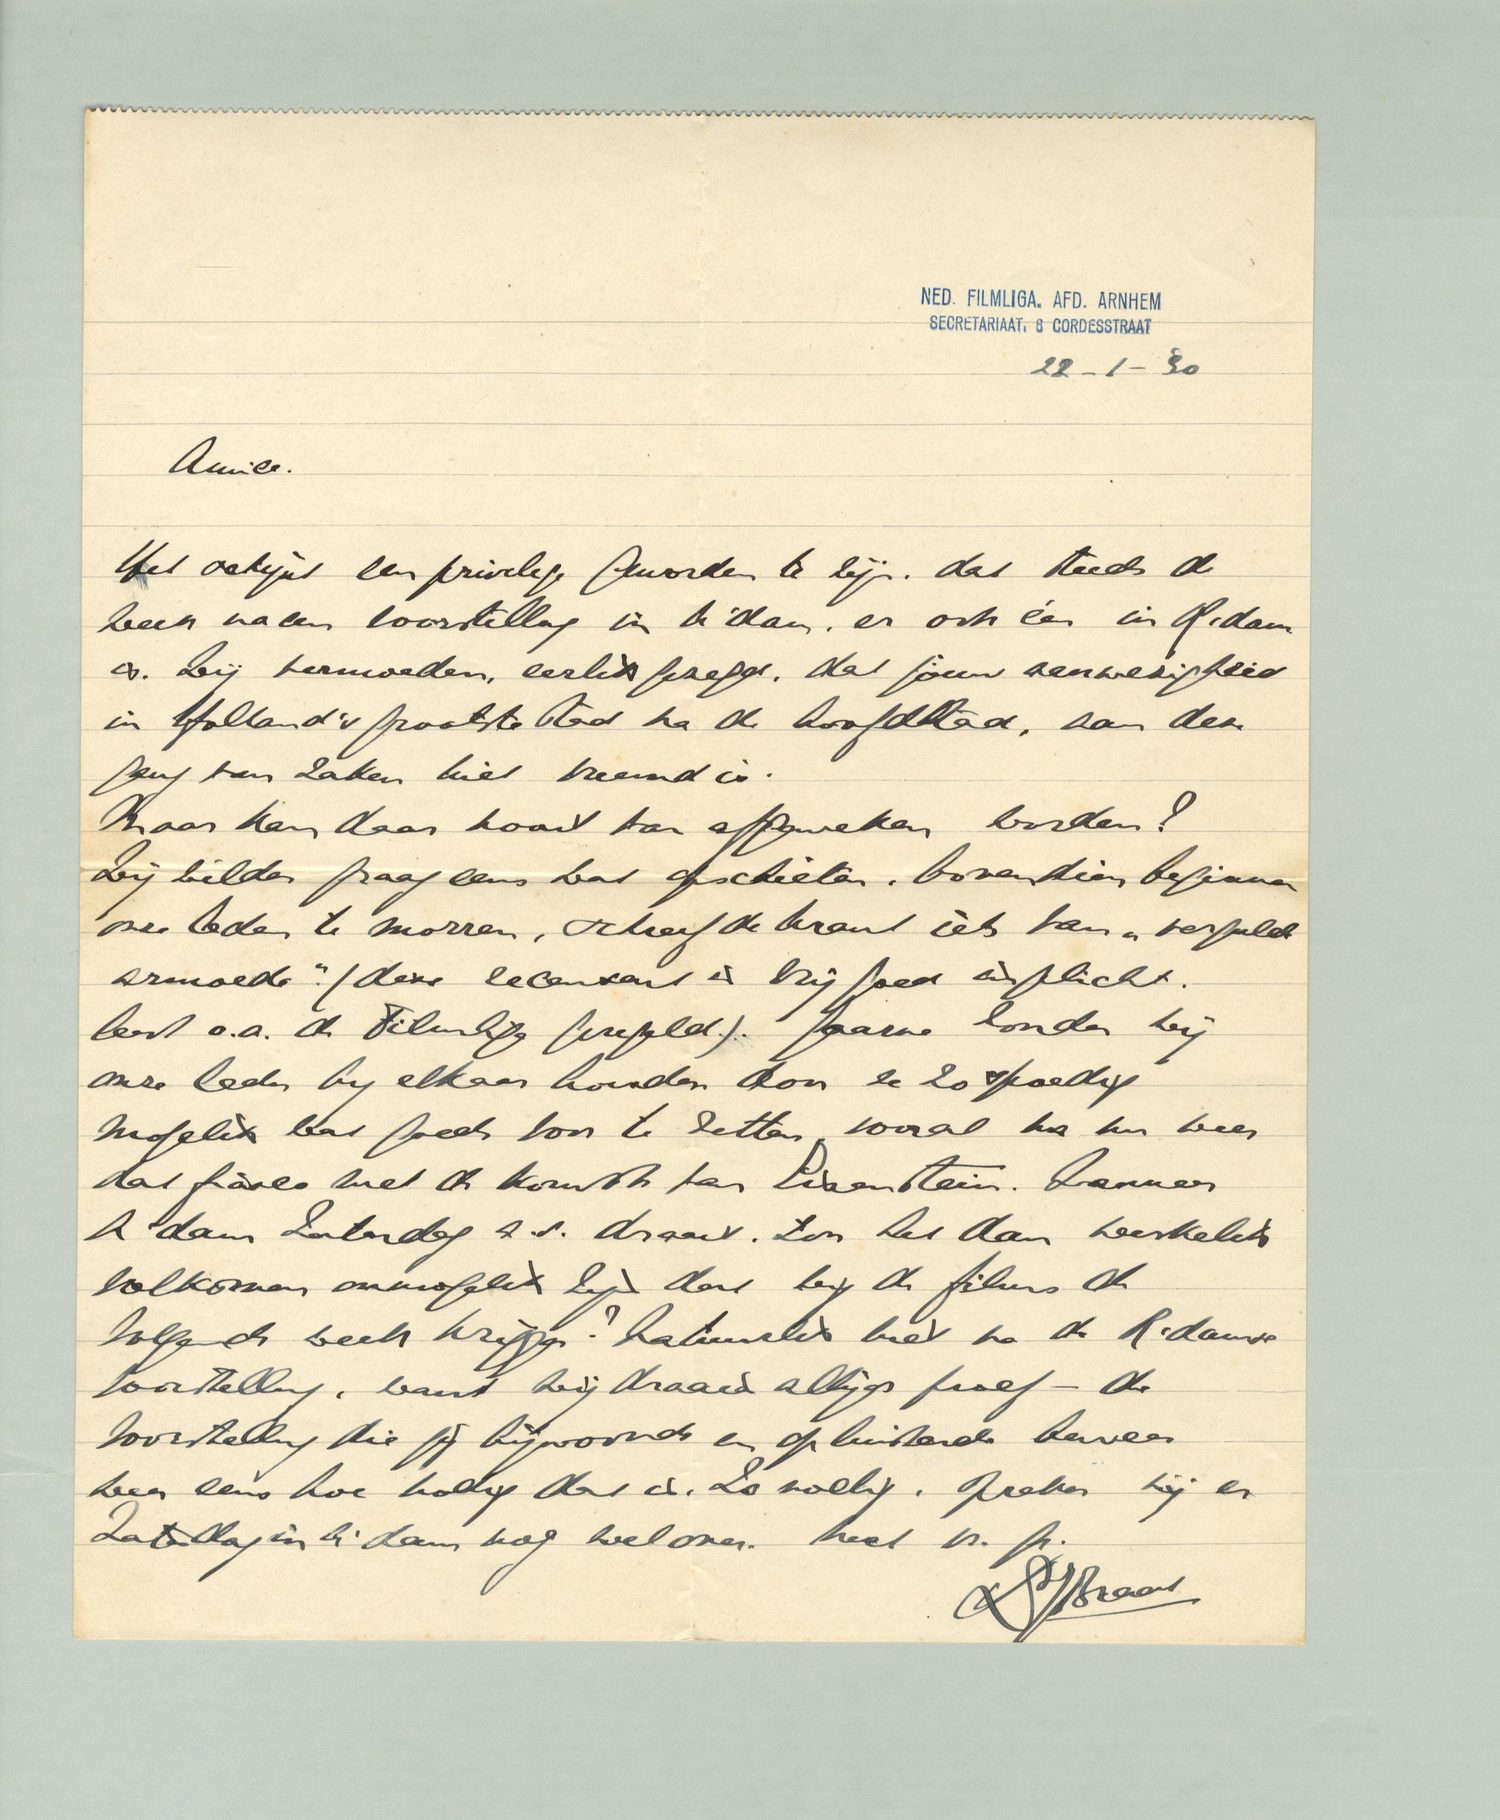 NED. FILMLIGA. AFD. ARNHEM
SECRETARIAAT. 6 CORDESSTRAAT
22-1-'30
Amice.
Het schijnt een privilege geworden te zijn. dat steeds de
week na een voorstelling in A'dam. er ook één in R'dam
is. Wij vermoeden, eerlik gezegd, dat jouw aanwezigheid
in Holland's grootste stad na de hoofdstad, aan deze
gang van zaken niet vreemd is.
Maar kan daar nooit van afgeweken worden?
Wij wilden graag eens wat opschieten. bovendien beginnen
onze leden te morren, schreef de krant iets van „vergulde
armoede" (deze recensent is vrij goed ingelicht.
leest o.a. de Filmliga geregeld.). gaarne zouden wij
onze leden bij elkaar houden door ze zo spoedig
mogelik wat goeds voor te zetten, vooral na nu weer
dat fiasco met de komst van Eisenstein. Wanneer
A'dam Zaterdag a.s. draait. zou het dan werkelik
volkomen onmogelik zijn dat wij de films de
volgende week krijgen? Natuurlik niet na de R'damse
voorstelling, want wij draaien altijd proef – de
voorstelling die jij bijwoonde en opluisterde bewees
weer eens hoe nodig dat is. Zo nodig, spreken wij er
Zaterdag in A'dam nog wel over. Met vr. gr.
Braat